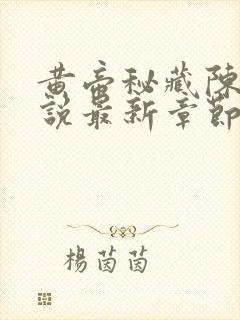 黄帝秘藏陳
說最新章節
楊茵茵